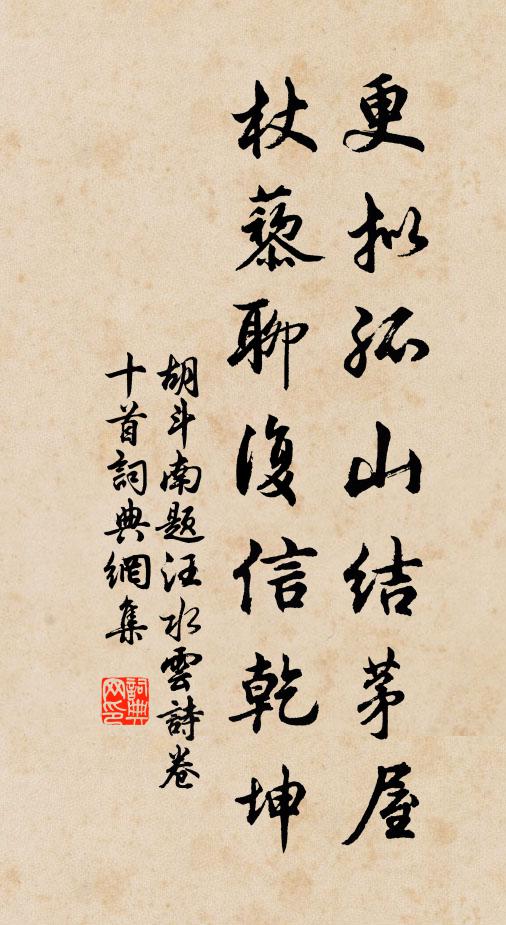 更拟孤山結茅屋
杖藜聊復信乾坤
胡斗南题汪水雲詩卷
十首詞典網集
詞典
网印